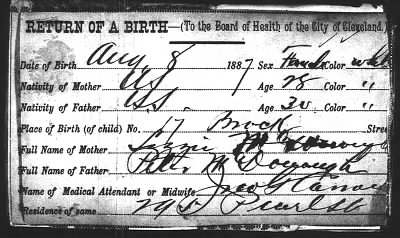 RETURN OF A BIRTH—(To the Board of Health of the City of Cleveland.
Date of Birth Aug 8 1887 Sex Female Color white
Nativity of Mother U.S. Age 28 Color "
Nativity of Father U.S. Age 30 Color "
Place of Birth (of child) No. 17 Brock Street
Full Name of Mother Lizzie
Full Name of Father Peter McDonough
Name of Medical Attendant or Midwife
Residence of same 295 Pearl St